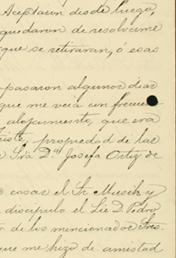 Aceptaron desde luego,
quedaron de resolverme
que se retiraran, ó esas
pasaron algunos dias
que me veia con frecuen
alojamiento, que era
propiedad de las
Sra Dª Josefa Ortiz de
casas el Sr Musch y
discipulo el Lic D. Pedro
de los mencionados Sres.
que me hizo de amistad